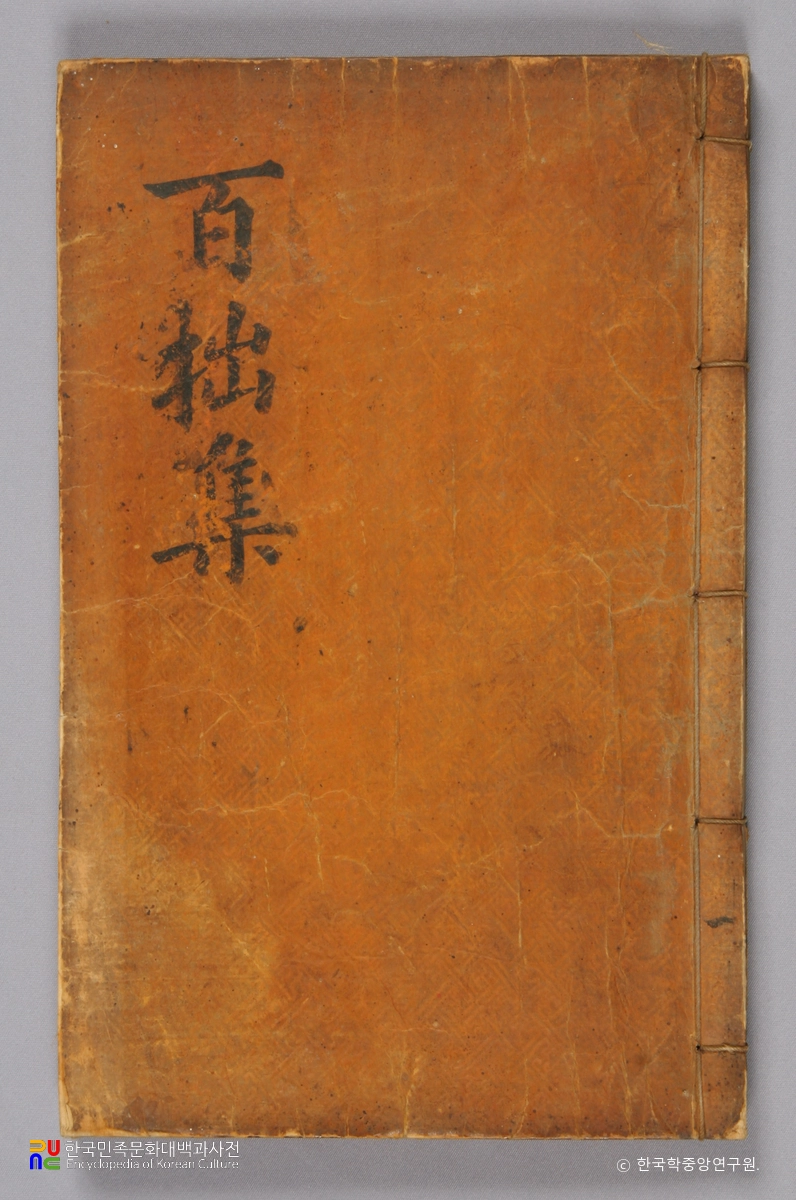 百拙集
한국민족문화대백과사전
Encyclopedia of Korean Culture
ⓒ 한국학중앙연구원.